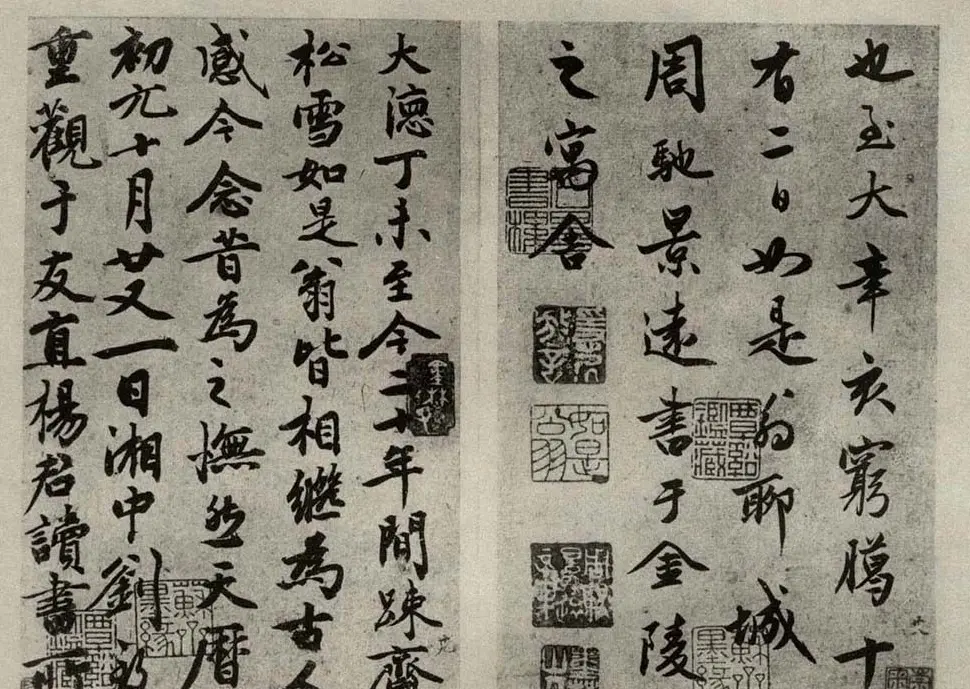 也至大辛亥窮臈十
有二日如是翁聊城
周馳景遠書于金陵
之寓舍
如是翁
大德丁未至今二十年間踈齋
松雪如是翁皆相繼為古人
感今念昔為之憮然天曆
初元十月廿又一日湘中劉
重觀于友直楊君讀書所